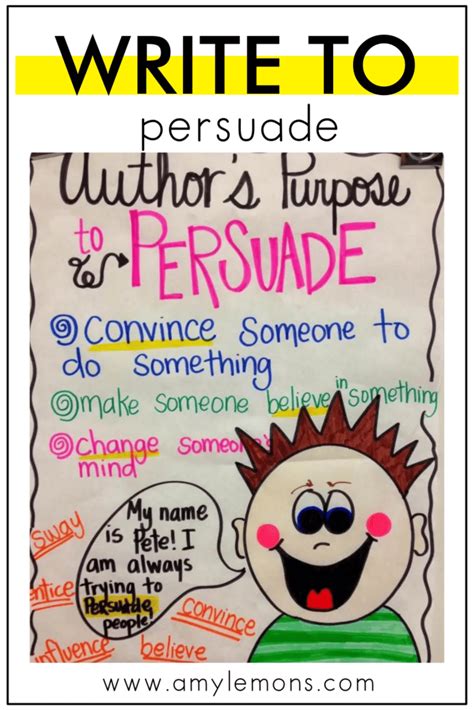 WRITE TO
persuade
Author's Purpose
to PERSUADE
Convince Someone to
do something
make someone believe in something
change someone's
mind
My name
is Pete! I
am always
trying to
Persuade
people!
sway
ntice
convince
influence
believe
www.amylemons.com